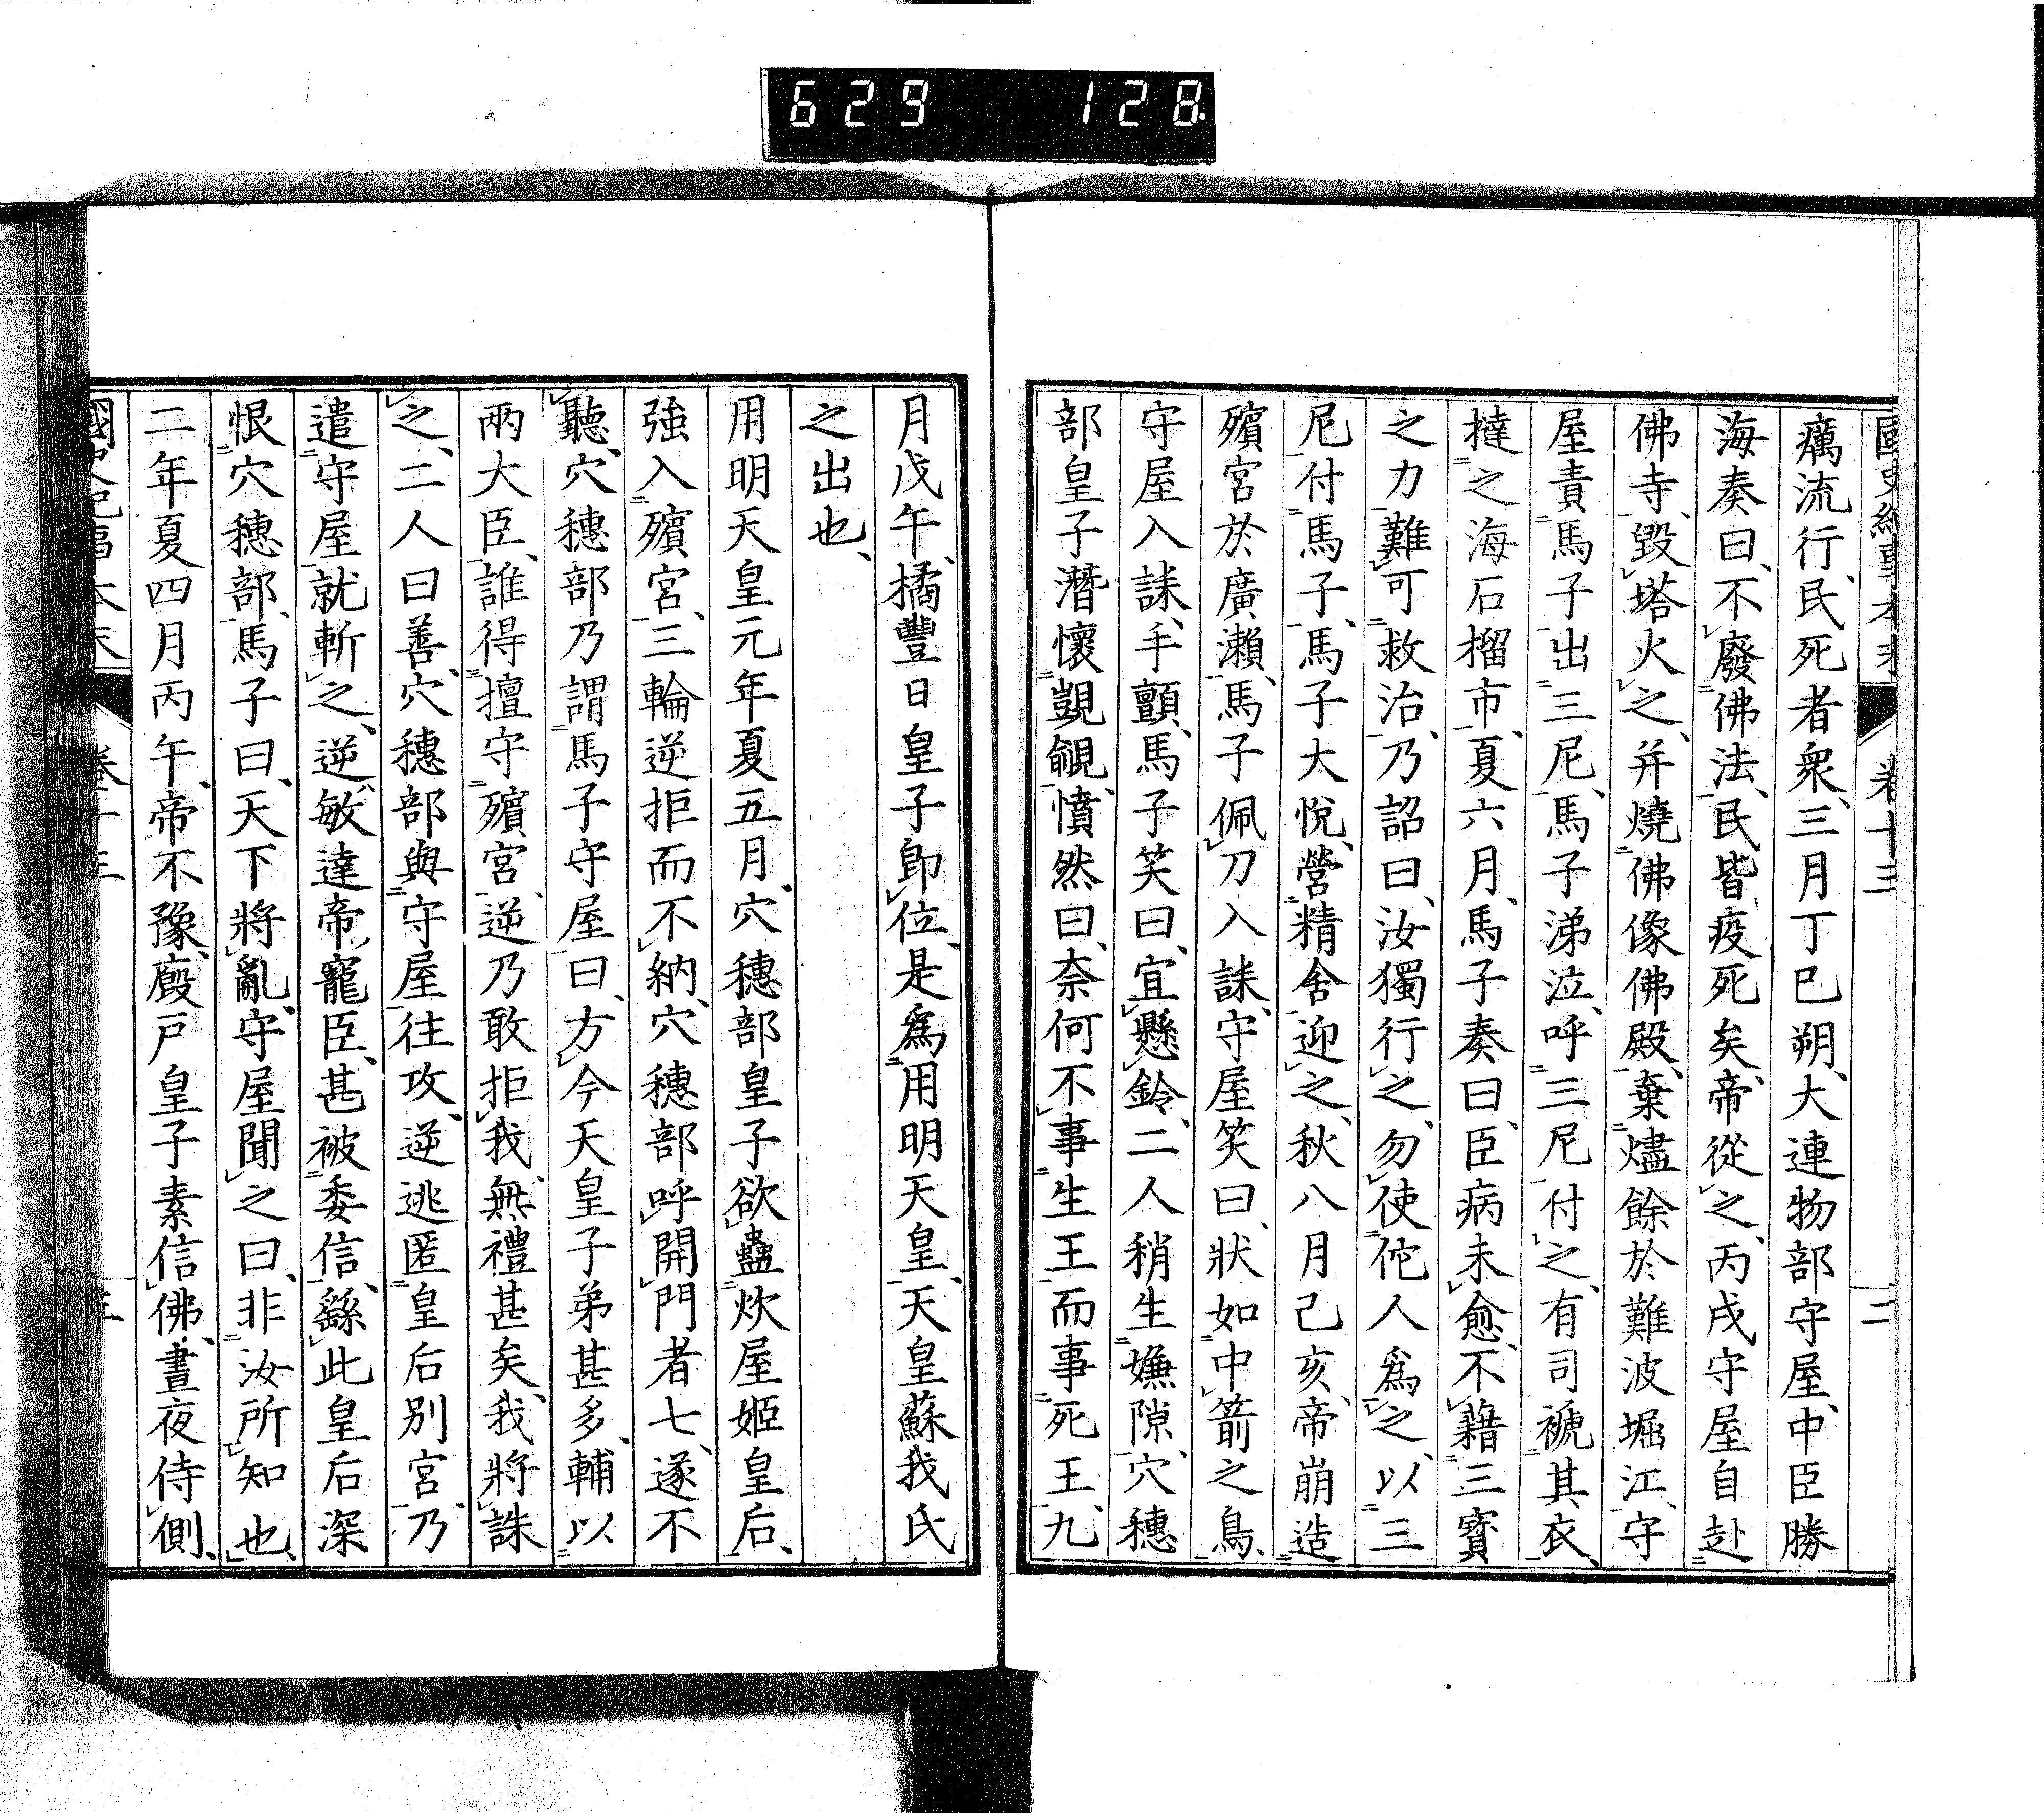 629 128
國史紀事本末 卷十三 二
癘流行、民死者衆、三月丁巳朔、大連物部守屋、中臣勝
海奏曰、不廢佛法、民皆疫死矣、帝從之、丙戌、守屋自赴
佛寺、毀塔火之、并燒佛像佛殿、棄燼餘於難波堀江、守
屋責馬子出三尼、馬子涕泣、呼三尼付之、有司褫其衣、
撻之海石榴市、夏六月、馬子奏曰、臣病未愈、不藉三寶
之力、難可救治、乃詔曰、汝獨行之、勿使佗人爲之、以三
尼付馬子、馬子大悅、營精舍迎之、秋八月己亥、帝崩造
殯宮於廣瀨、馬子佩刀入誄、守屋笑曰、狀如中箭之鳥、
守屋入誄、手顫、馬子笑曰、宜懸鈴、二人稍生嫌隙、穴穗
部皇子潛懷覬覦、憤然曰、奈何不事生王而事死王、九
月戊午、橘豐日皇子卽位、是爲用明天皇、天皇蘇我氏
之出也、
用明天皇元年夏五月、穴穗部皇子欲蠱炊屋姬皇后、
強入殯宮、三輪逆拒而不納、穴穗部呼開門者七、遂不
聽、穴穗部乃謂馬子守屋曰、方今天皇子弟甚多、輔以
兩大臣、誰得擅守殯宮、逆乃敢拒我、無禮甚矣、我將誅
之、二人曰善、穴穗部與守屋往攻、逆逃匿皇后別宮、乃
遣守屋就斬之、逆、敏達帝寵臣、甚被委信、繇此皇后深
恨穴穗部、馬子曰、天下將亂、守屋聞之曰、非汝所知也、
二年夏四月丙午、帝不豫、廄戶皇子素信佛、晝夜侍側、
國史紀事本末 卷十三 三